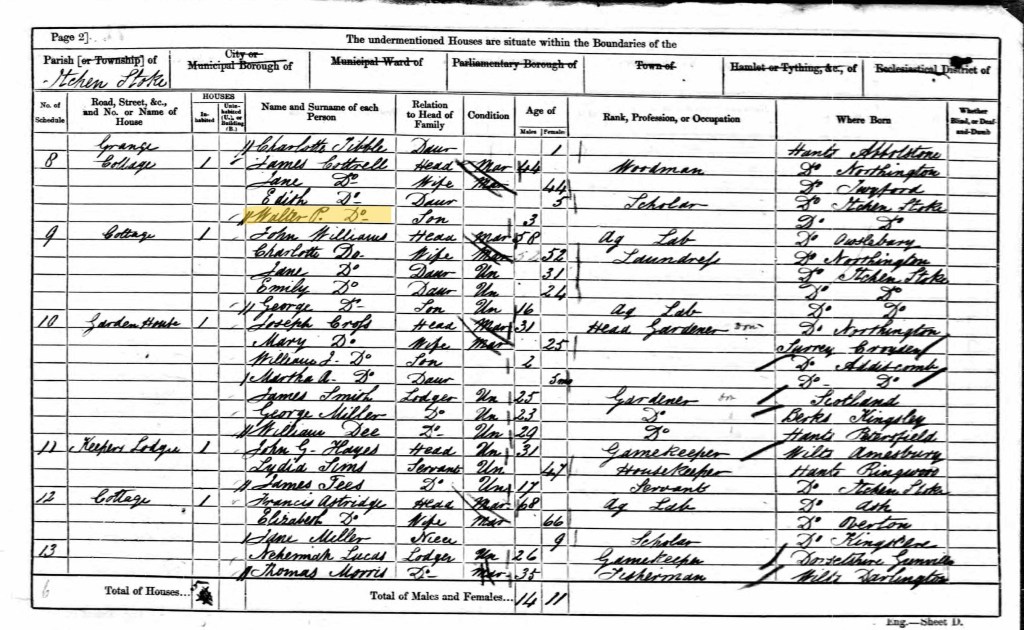 Page 2]
The undermentioned Houses are situate within the Boundaries of the
Parish [or Township] of City or Municipal Borough of Municipal Ward of Parliamentary Borough of Town of Hamlet or Tything, &c., of Ecclesiastical District of
Itchen Stoke
No. of Schedule Road, Street, &c., and No. or Name of House HOUSES Inhabited Uninhabited (U.), or Building (B.) Name and Surname of each Person Relation to Head of Family Condition Age of Males Females Rank, Profession, or Occupation Where Born Whether Blind, or Deaf-and-Dumb
Grange Charlotte Tibble Daur 1 Hants Abbotstone
8 Cottage 1 James Cottrell Head Mar 44 Woodman Do Northington
Jane Do Wife Mar 44 Do Twyford
Edith Do Daur 5 Scholar Do Itchen Stoke
Walter P. Do Son 3 Do Do
9 Cottage 1 John Williams Head Mar 58 Ag Lab Do Owslebury
Charlotte Do Wife Mar 52 Laundress Do Northington
Jane Do Daur Un 31 Do Itchen Stoke
Emily Do Daur Un 24 Do Do
George Do Son Un 16 Ag Lab Do Do
10 Garden House 1 Joseph Cross Head Mar 31 Head Gardener Dom Do Northington
Mary Do Wife Mar 25 Surrey Croyden
William J. Do Son 2 Do Addiscomb
Martha A. Do Daur 5 mo Do Do
James Smith Lodger Un 25 Gardener Dom Scotland
George Miller Do Un 23 Do Berks Kingsley
William Dee Do Un 29 Do Hants Petersfield
11 Keepers Lodge 1 John G. Hayes Head Un 31 Gamekeeper Wilts Amesbury
Lydia Sims Servant Un 47 Housekeeper Hants Ringwood
James Tees Do Un 17 Servant Do Itchen Stoke
12 Cottage 1 Francis Astridge Head Mar 68 Ag Lab Do Ash
Elizabeth Do Wife Mar 66 Do Overton
Jane Miller Niece 9 Scholar Do Kingsclere
13 Nehemiah Lucas Lodger Un 26 Gamekeeper Dorsetshire Gunville
Thomas Morris Do Mar 35 Fisherman Wilts Darlington
6 Total of Houses... Total of Males and Females... 14 11
Eng.—Sheet D.